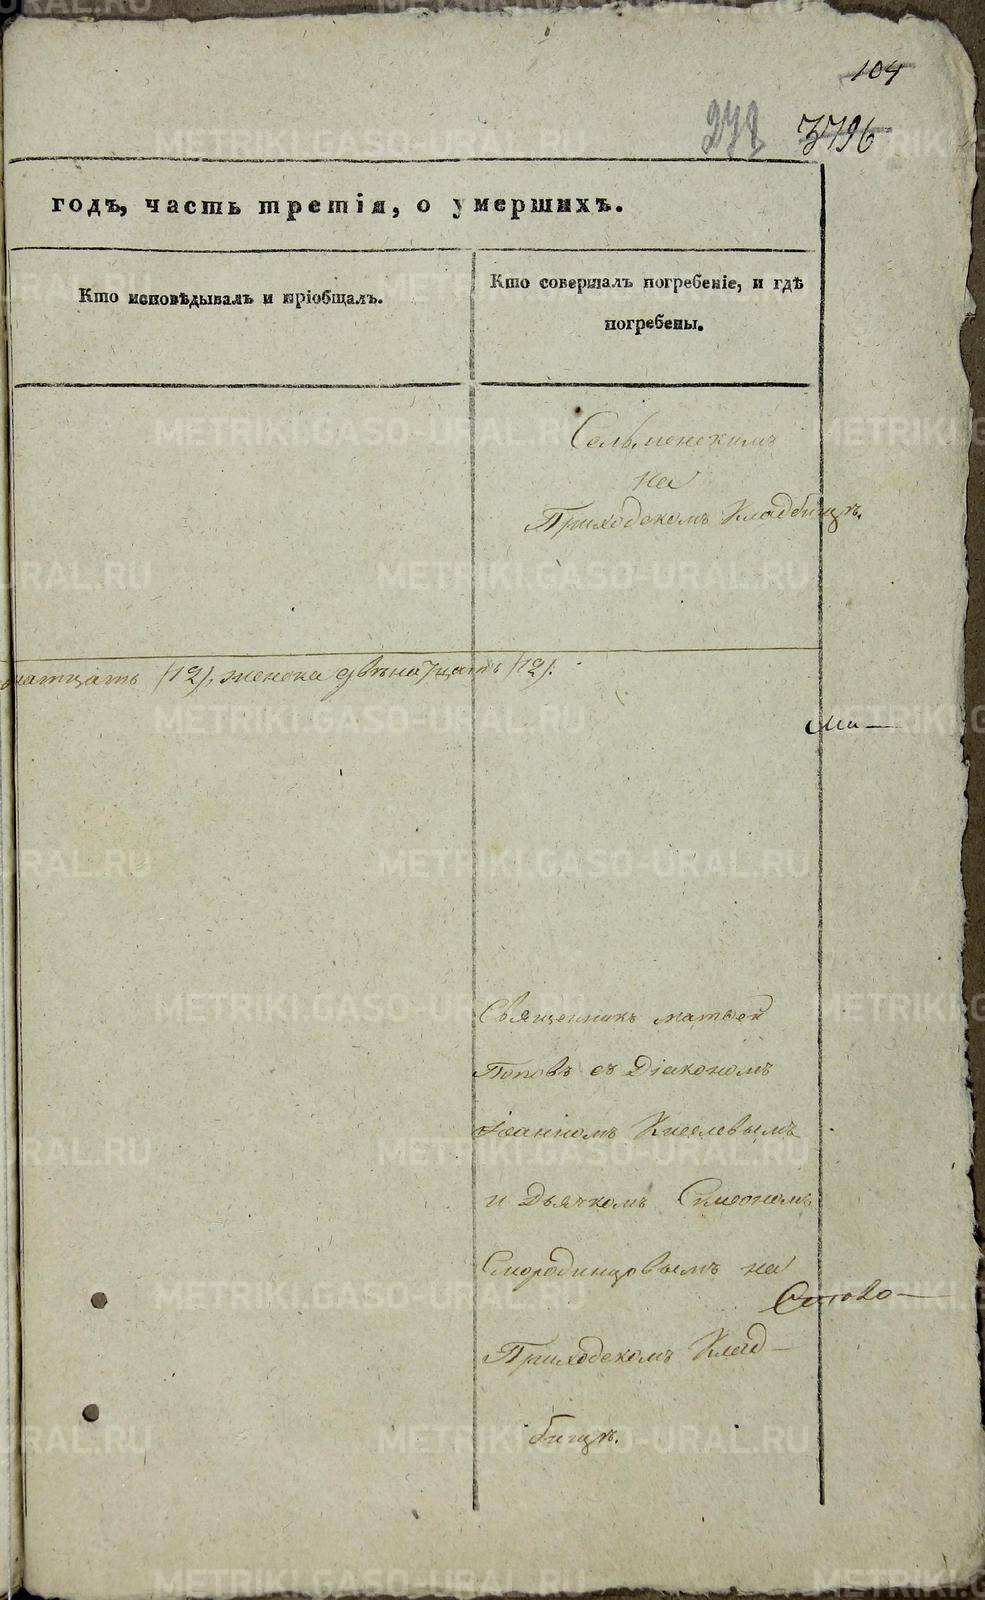 104
3796
годъ, часть третія, о умершихъ.
Кто исповѣдывалъ и пріобщалъ.
Кто совершалъ погребеніе, и гдѣ
погребены.
на
Приходскомъ Кладбищѣ.
натцать (12), женска двѣнатцать (12).
Ми—
Священникъ матвей
Поповъ съ Діакономъ
Іоанномъ Киселевымъ
и Дьячкомъ Симеономъ
Смородинцовымъ на
Приходскомъ Клад—
бищѣ.
METRIKI.GASO-URAL.RU